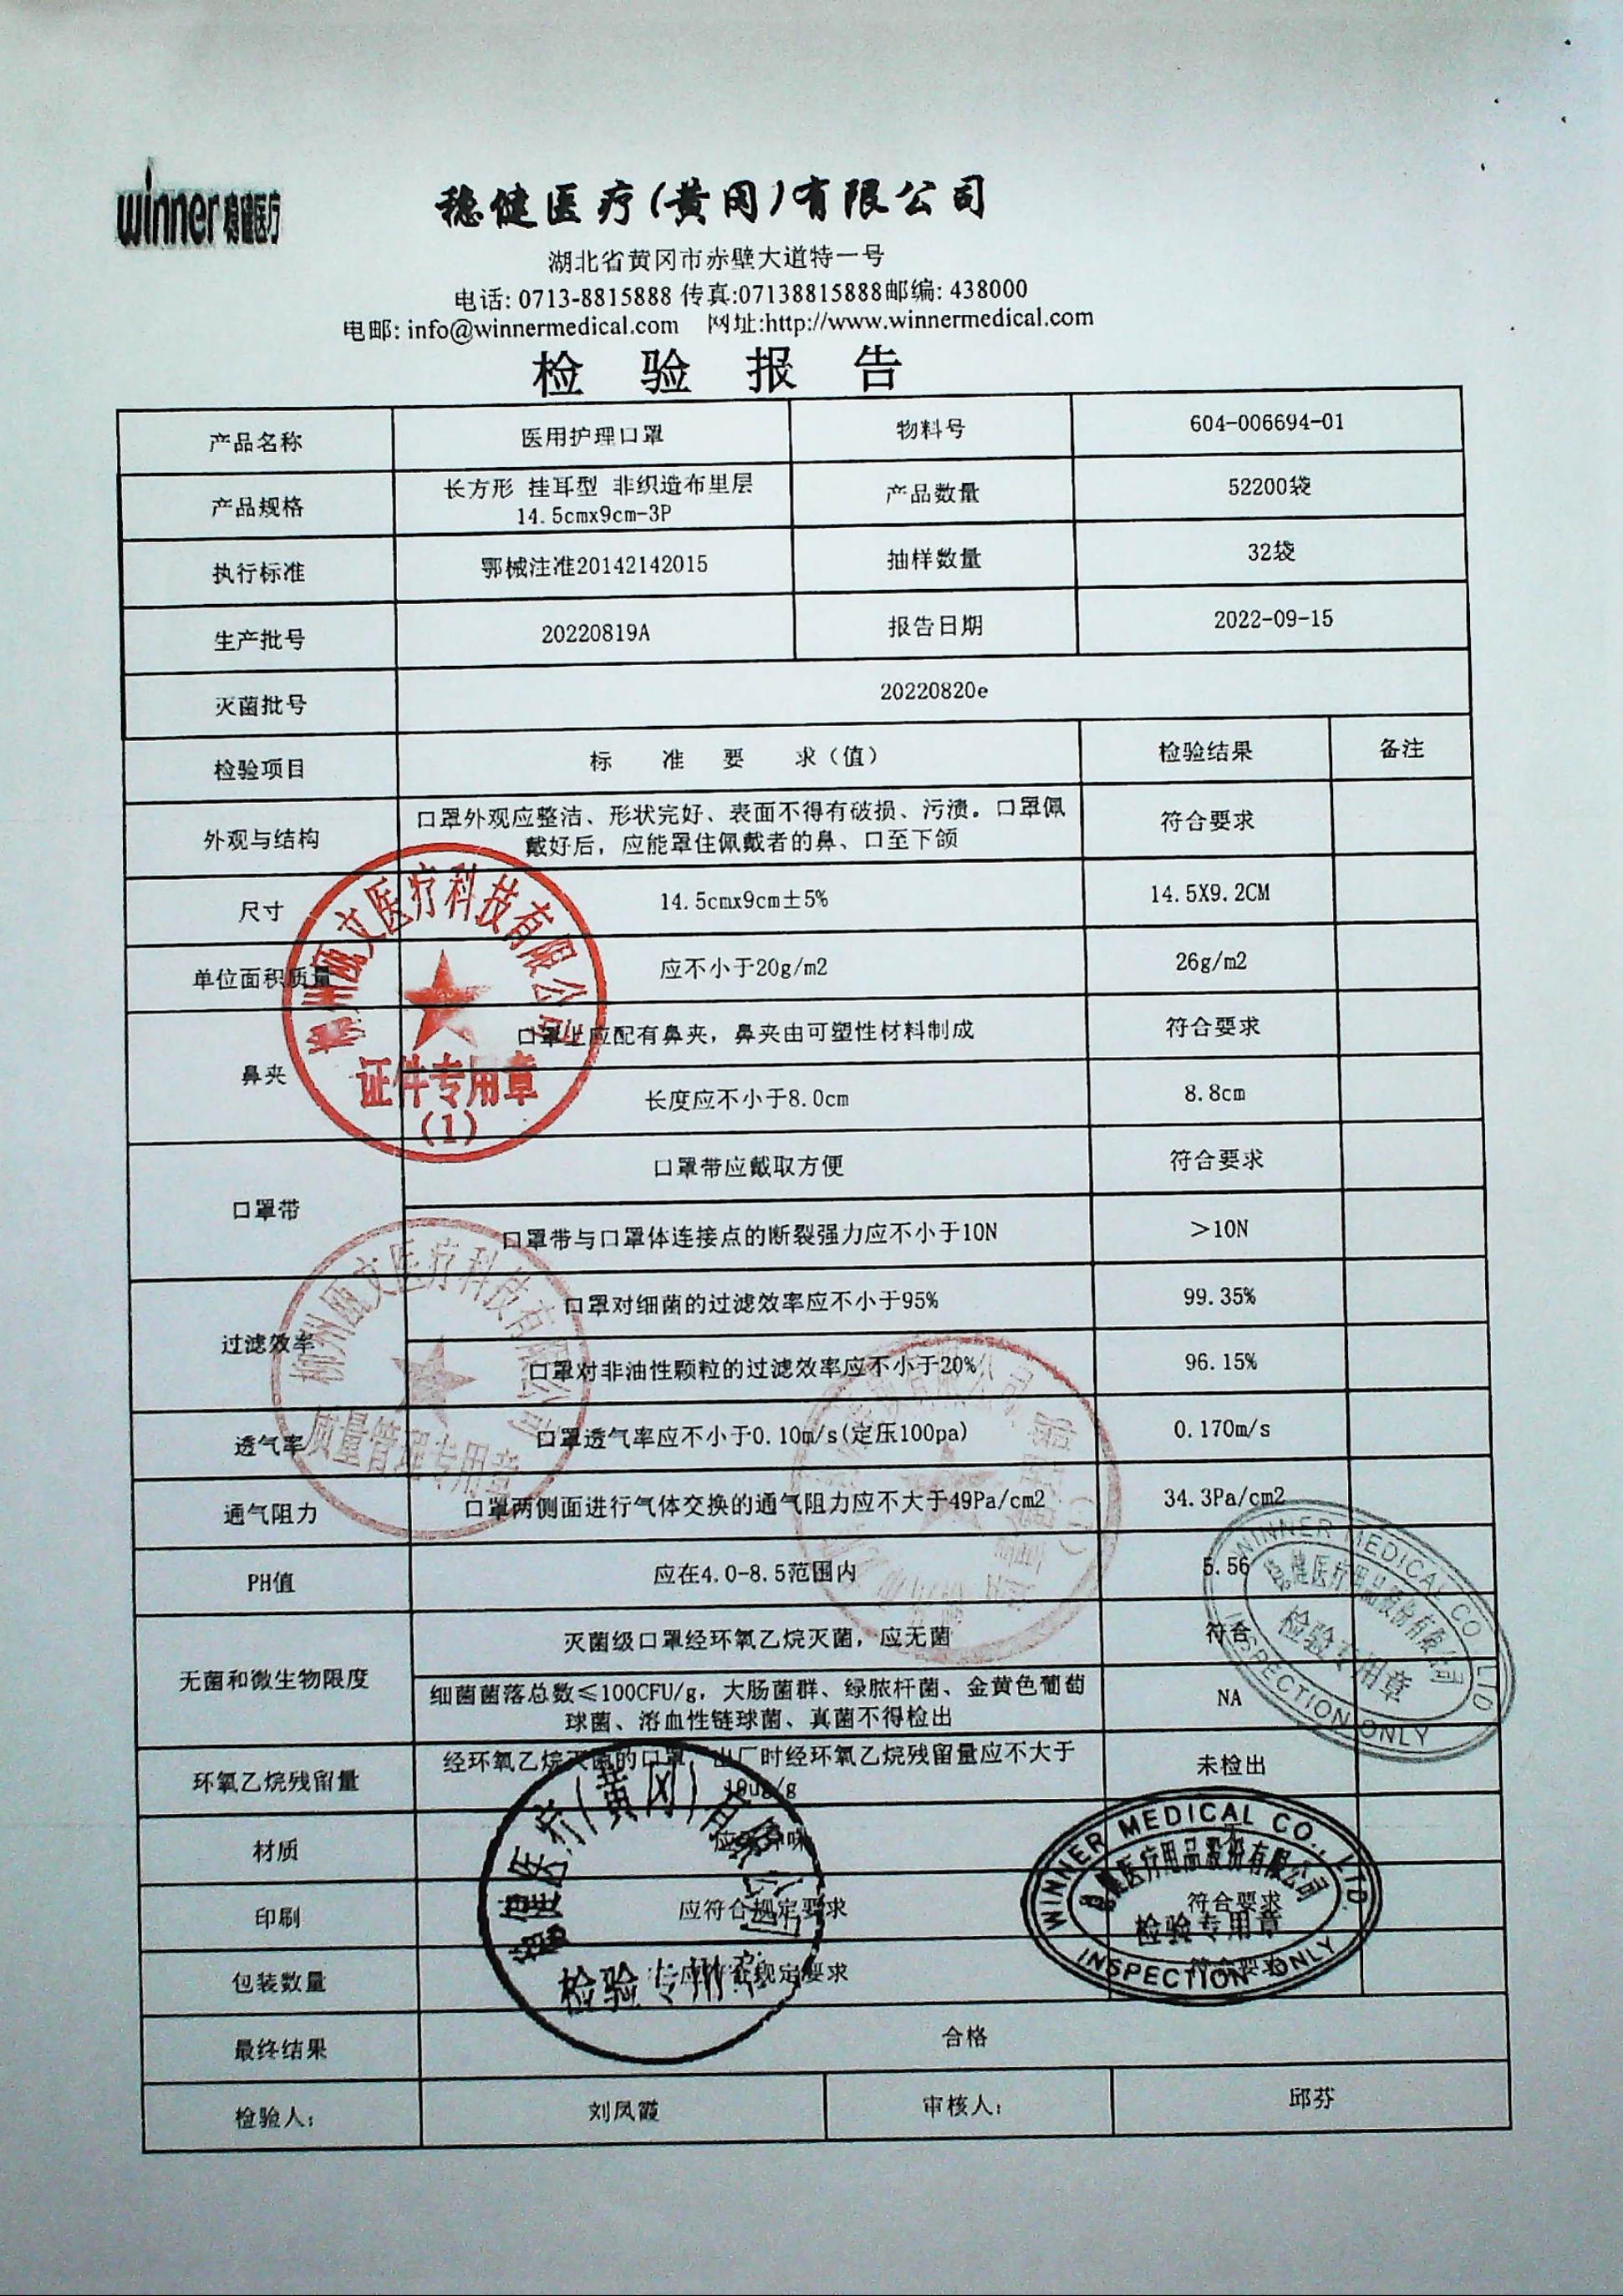 winner 稳健医疗
稳健医疗(黄冈)有限公司
湖北省黄冈市赤壁大道特一号
电话: 0713-8815888 传真:07138815888邮编: 438000
电邮: info@winnermedical.com 网址:http://www.winnermedical.com
检 验 报 告
产品名称 医用护理口罩 物料号 604-006694-01
产品规格 长方形 挂耳型 非织造布里层 产品数量 52200袋
14.5cmx9cm-3P
执行标准 鄂械注准20142142015 抽样数量 32袋
生产批号 20220819A 报告日期 2022-09-15
灭菌批号 20220820e
检验项目 标 准 要 求(值) 检验结果 备注
外观与结构 口罩外观应整洁、形状完好、表面不得有破损、污渍。口罩佩 符合要求
戴好后，应能罩住佩戴者的鼻、口至下颌
尺寸 14.5cmx9cm±5% 14.5X9.2CM
单位面积质量 应不小于20g/m2 26g/m2
鼻夹 口罩上应配有鼻夹，鼻夹由可塑性材料制成 符合要求
长度应不小于8.0cm 8.8cm
口罩带 口罩带应戴取方便 符合要求
口罩带与口罩体连接点的断裂强力应不小于10N >10N
过滤效率 口罩对细菌的过滤效率应不小于95% 99.35%
口罩对非油性颗粒的过滤效率应不小于20% 96.15%
透气率 口罩透气率应不小于0.10m/s(定压100pa) 0.170m/s
通气阻力 口罩两侧面进行气体交换的通气阻力应不大于49Pa/cm2 34.3Pa/cm2
PH值 应在4.0-8.5范围内 5.56
无菌和微生物限度 灭菌级口罩经环氧乙烷灭菌，应无菌 符合
细菌菌落总数≤100CFU/g，大肠菌群、绿脓杆菌、金黄色葡萄 NA
球菌、溶血性链球菌、真菌不得检出
环氧乙烷残留量 经环氧乙烷灭菌的口罩，出厂时经环氧乙烷残留量应不大于 未检出
10ug/g
材质
印刷 应符合规定要求 符合要求
包装数量 应符合规定要求 符合要求
最终结果 合格
检验人: 刘凤霞 审核人: 邱芬
柳州瓯文医疗科技有限公司
证件专用章
(1)
柳州瓯文医疗科技有限公司
质量管理专用章
WINNER MEDICAL CO., LTD
稳健医疗用品股份有限公司
检验专用章
INSPECTION ONLY
稳健医疗(黄冈)有限公司
检验专用章
WINNER MEDICAL CO., LTD.
稳健医疗用品股份有限公司
检验专用章
INSPECTION ONLY